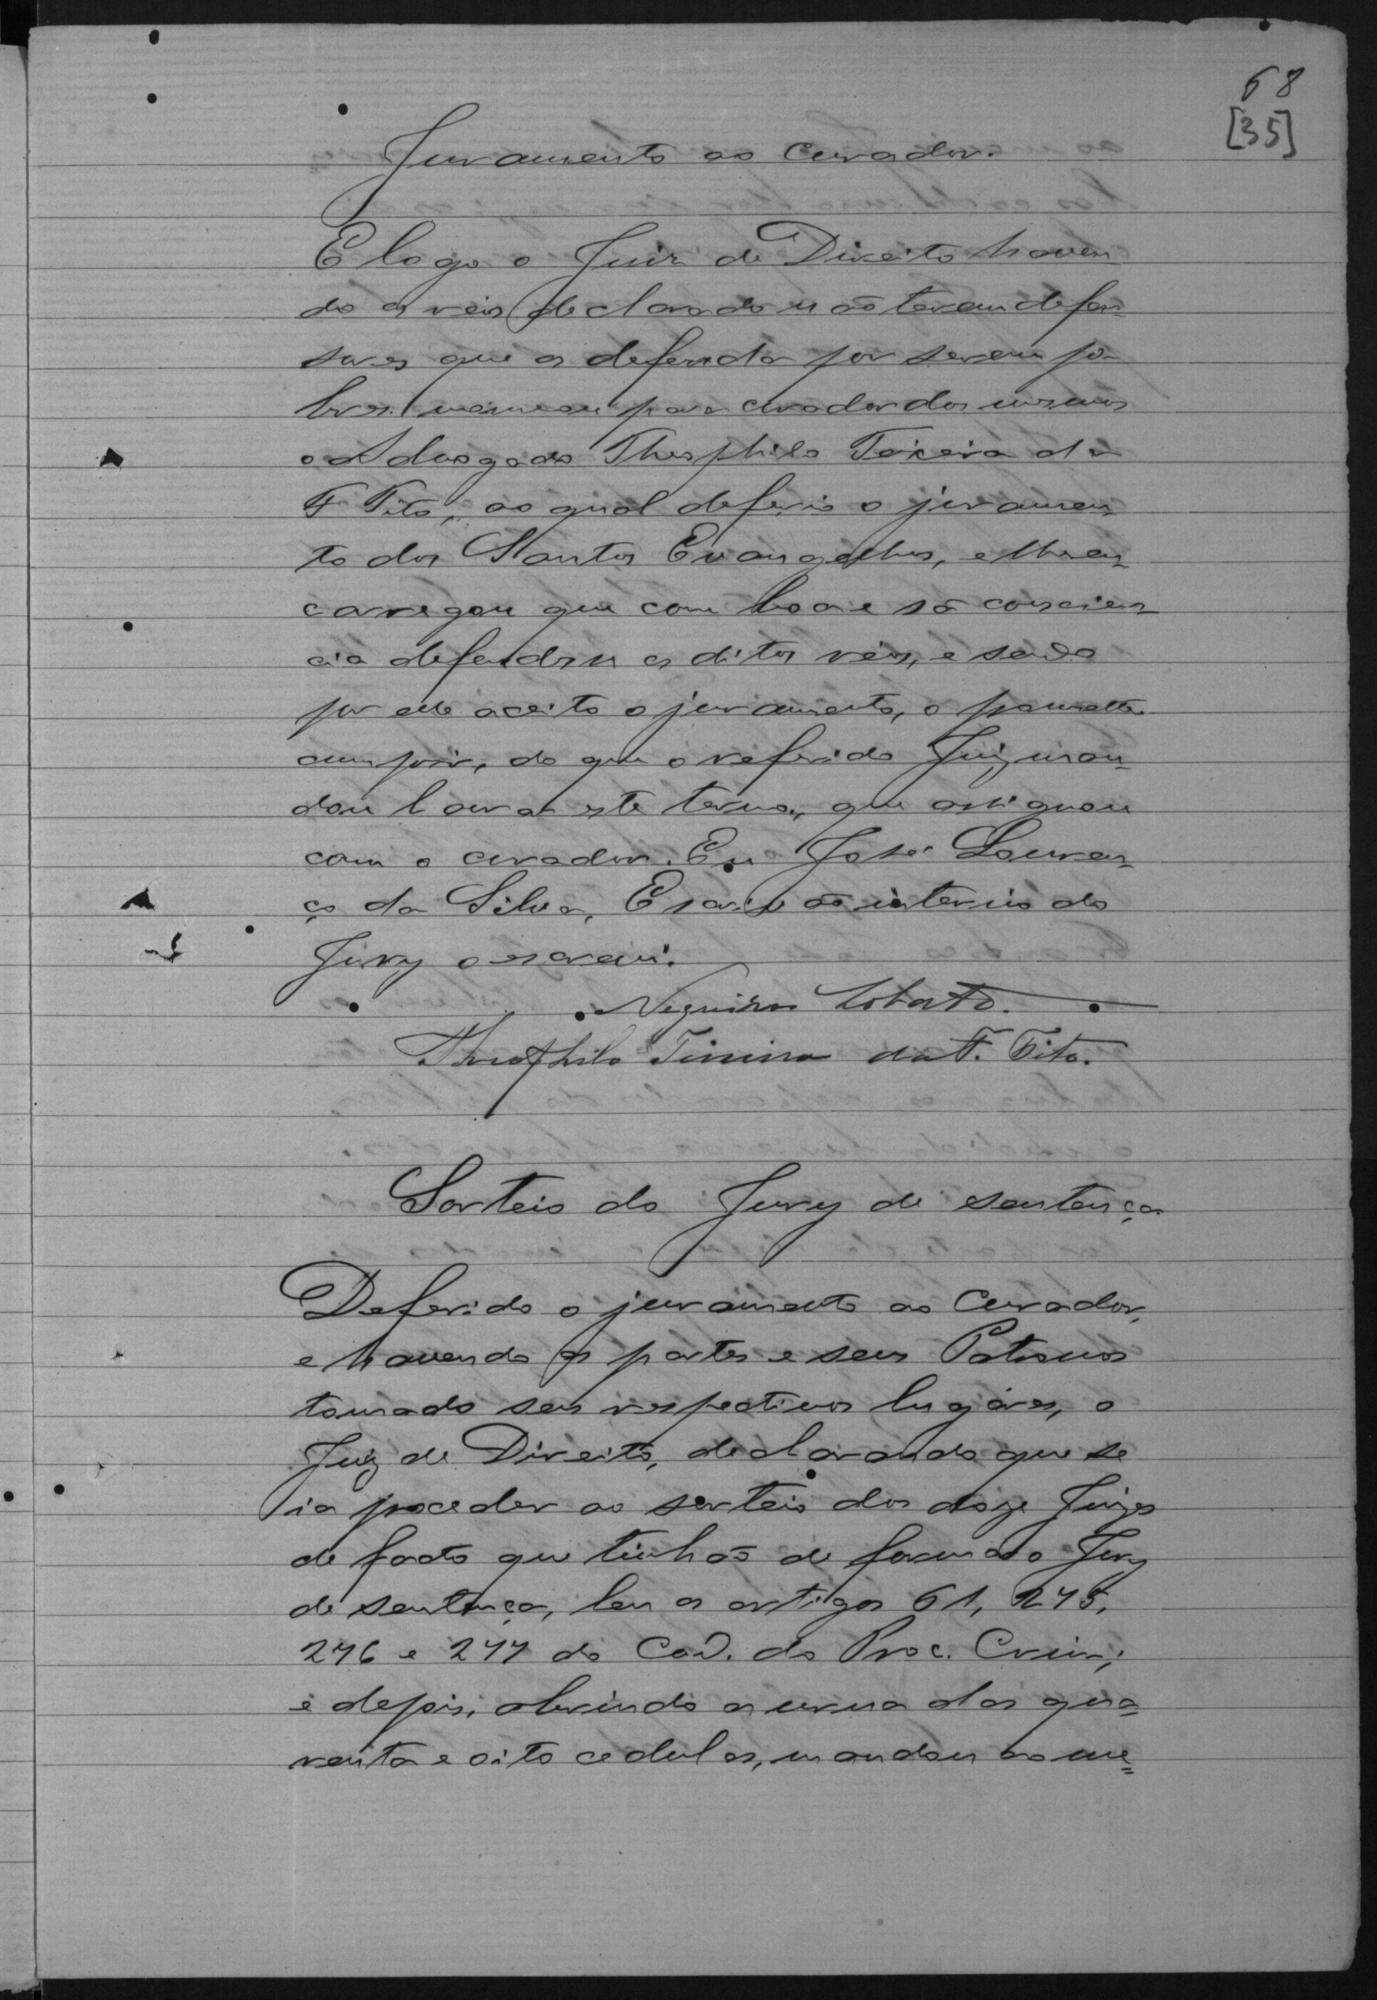 68
[35]
Juramento ao curador.
E logo o Juiz de Direito haven
do os réos declarado não terem defen-
sores que os defenda por serem po-
bres nomeou para curador dos mesmos
o Advogado Theophilo Teixeira da
F Tito, ao qual deferio o juramen-
to dos Santos Evangelhos, e lhe en-
carregou que com boa e sã conscien-
cia defendesse os ditos réos, e sendo
por elle aceito o juramento, o prometteo
cumprir, do que o referido Juiz man-
dou lavrar este termo, que assignou
com o curador. Eu José Louren-
ço da Silva, Escrivão interino do
Jury o escrevi.
Lobato.
Theophilo Teixeira da F. Tito.
Sorteio do Jury de sentença
Deferido o juramento ao Curador,
e havendo as partes e seus Patronos
tomado seus respectivos lugáres, o
Juiz de Direito, declarando que se
ia proceder ao sorteio dos doze Juizes
de facto que tinhão de formar o Jury
de sentença, leu os artigos 61, 275,
276 e 277 do Cod. do Proc. Crim;
e depois, abrindo a urna das qua-
renta e oito cedulas, mandou ao me=